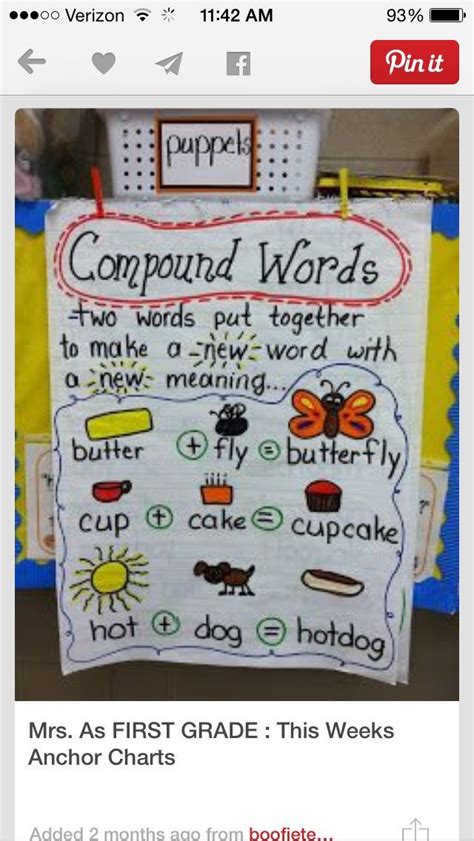 Verizon 11:42 AM 93%
Pin it
puppets
Compound Words
-two words put together
to make a -new- word with
a -new- meaning...
butter + fly = butterfly
cup + cake = cupcake
hot + dog = hotdog
Mrs. As FIRST GRADE : This Weeks
Anchor Charts
Added 2 months ago from boofiete...